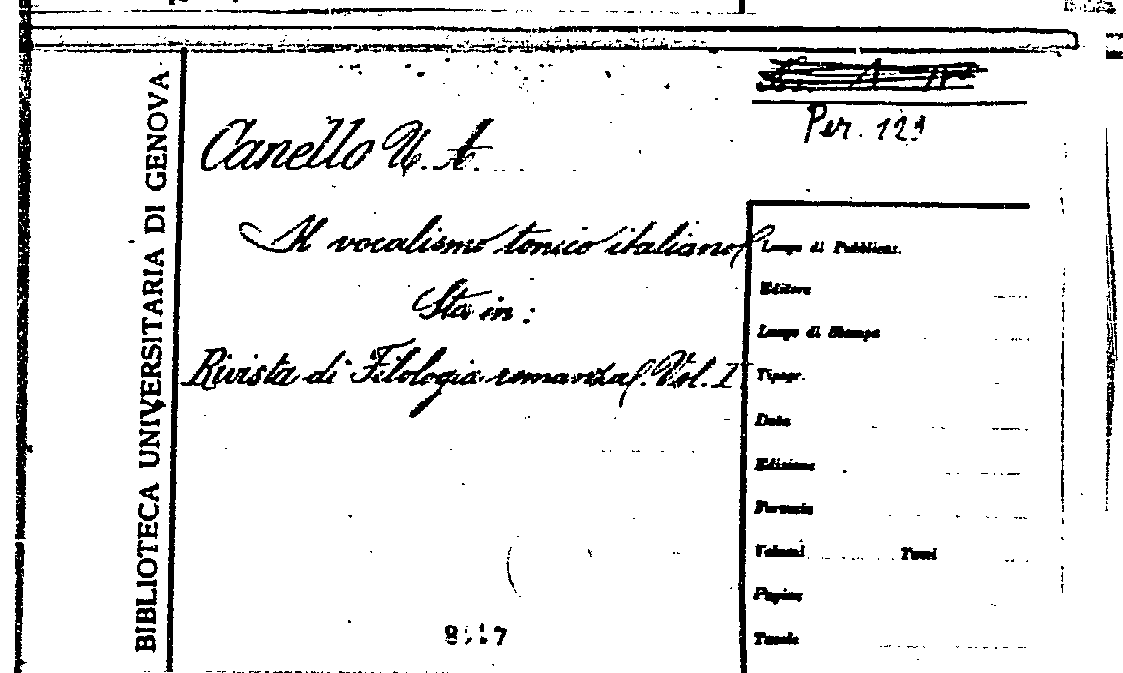 BIBLIOTECA UNIVERSITARIA DI GENOVA
Per. 123
Canello U. A.
Il vocalismo tonico italiano
Sta in:
Rivista di Filologia romanza. Vol. I
Luogo di Pubblicaz.
Editore
Luogo di Stampa
Tipogr.
Data
Edizione
Formato
Volumi Tomi
Pagine
Tavole